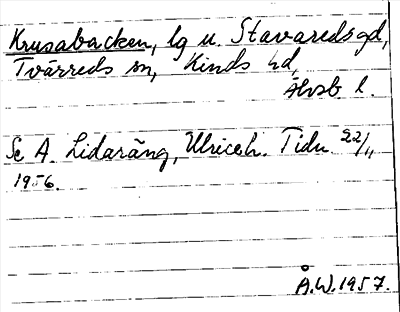 Krusabacken, lg u. Stavareds gd,
Tvärreds sn, Kinds hd,
Älvsb. l.
Se A. Lidaräng, Ulriceh. Tidn 22/11
1956.
Å.W.1957.